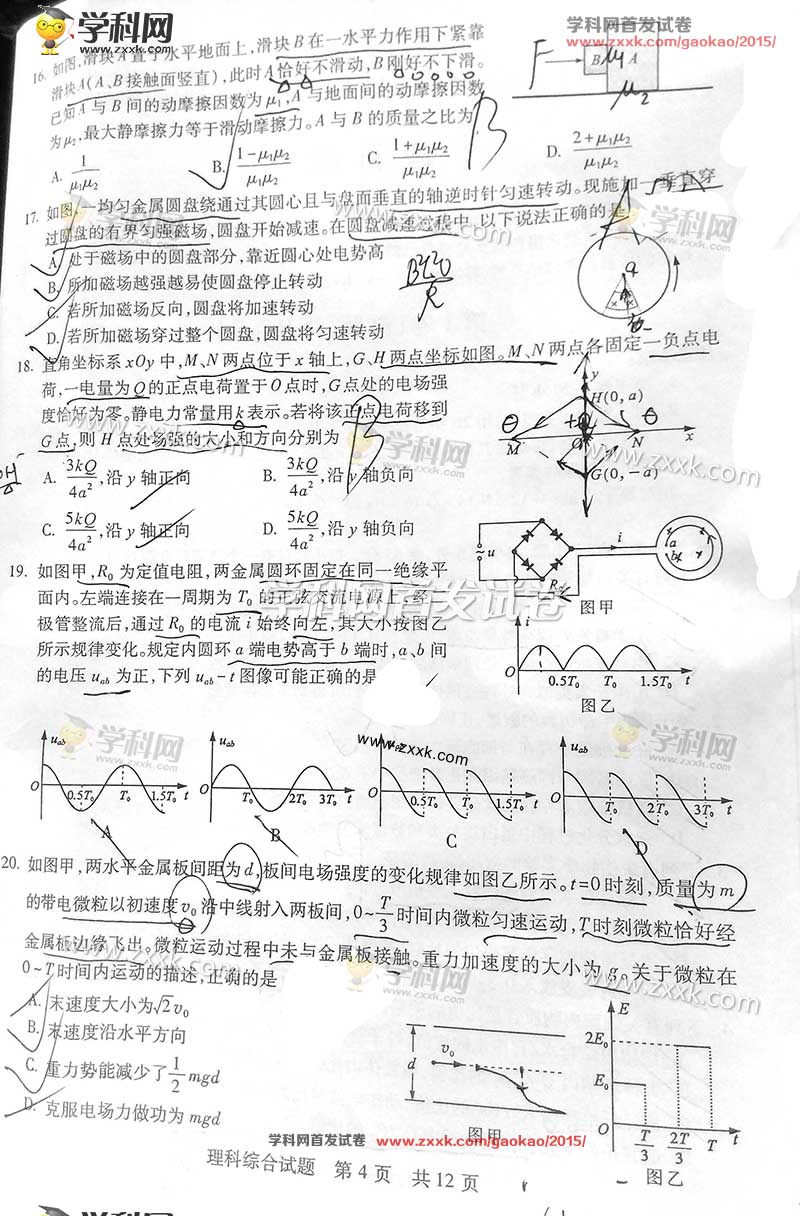 学科网
www.zxxk.com
学科网首发试卷
www.zxxk.com/gaokao/2015/
16. 如图,滑块A置于水平地面上,滑块B在一水平力作用下紧靠
滑块A(A、B接触面竖直),此时A恰好不滑动,B刚好不下滑。
已知A与B间的动摩擦因数为μ₁,A与地面间的动摩擦因数
为μ₂,最大静摩擦力等于滑动摩擦力。A与B的质量之比为
A. 1/μ₁μ₂ B. (1-μ₁μ₂)/μ₁μ₂ C. (1+μ₁μ₂)/μ₁μ₂ D. (2+μ₁μ₂)/μ₁μ₂
F B A
μ₁
μ₂
B
17. 如图,一均匀金属圆盘绕通过其圆心且与盘面垂直的轴逆时针匀速转动。现施加一垂直穿
过圆盘的有界匀强磁场,圆盘开始减速。在圆盘减速过程中,以下说法正确的是
A. 处于磁场中的圆盘部分,靠近圆心处电势高
B. 所加磁场越强越易使圆盘停止转动
C. 若所加磁场反向,圆盘将加速转动
D. 若所加磁场穿过整个圆盘,圆盘将匀速转动
www.zxxk.com
18. 直角坐标系xOy中,M、N两点位于x轴上,G、H两点坐标如图。M、N两点各固定一负点电
荷,一电量为Q的正点电荷置于O点时,G点处的电场强
度恰好为零。静电力常量用k表示。若将该正点电荷移到
G点,则H点处场强的大小和方向分别为
A. 3kQ/4a²,沿y轴正向 B. 3kQ/4a²,沿y轴负向
C. 5kQ/4a²,沿y轴正向 D. 5kQ/4a²,沿y轴负向
B
y
H(0,a)
M N x
G(0,-a)
学科网
www.zxxk.com
19. 如图甲,R₀为定值电阻,两金属圆环固定在同一绝缘平
面内。左端连接在一周期为T₀的正弦交流电源上,经二
极管整流后,通过R₀的电流i始终向左,其大小按图乙
所示规律变化。规定内圆环a端电势高于b端时,a、b间
的电压uab为正,下列uab-t图像可能正确的是
学科网首发试卷
~u i a b
R₀
图甲
i
O 0.5T₀ T₀ 1.5T₀ t
图乙
学科网
www.zxxk.com
www.zxxk.com
学科网
www.zxxk.com
uab uab uab
O 0.5T₀ T₀ 1.5T₀ t O T₀ 2T₀ 3T₀ t O 0.5T₀ T₀ 1.5T₀ t O T₀ 2T₀ 3T₀ t
A B C D
20. 如图甲,两水平金属板间距为d,板间电场强度的变化规律如图乙所示。t=0时刻,质量为m
的带电微粒以初速度v₀沿中线射入两板间,0~T/3时间内微粒匀速运动,T时刻微粒恰好经
金属板边缘飞出。微粒运动过程中未与金属板接触。重力加速度的大小为g。关于微粒在
0~T时间内运动的描述,正确的是
A. 末速度大小为√2v₀
B. 末速度沿水平方向
C. 重力势能减少了1/2mgd
D. 克服电场力做功为mgd
学科网
www.zxxk.com
www.zxxk.com
d v₀
图甲
E
2E₀
E₀
O T/3 2T/3 T t
图乙
学科网首发试卷 www.zxxk.com/gaokao/2015/
理科综合试题 第4页 共12页